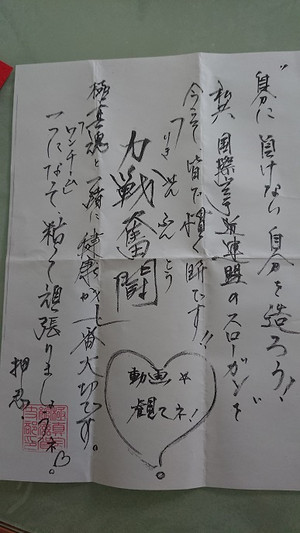 "自分に負けない自分を造ろう!"
私共国際空手道連盟のスローガンを
今こそ、皆で貫く時です!!
力戦奮闘
りきせんふんとう
極真魂と一緒に健康が一番大切です。
ワンチーム
一つになって、粘って頑張りましょうネ。
押忍
動画☆
観てネ!